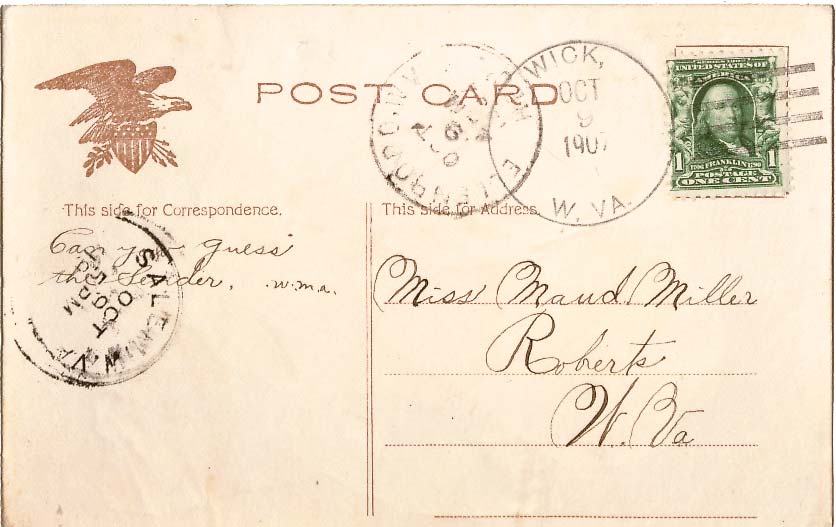 POST CARD
WICK,
OCT
9
1907
W. VA.
SERIES 1902
UNITED STATES OF
AMERICA
1706 FRANKLIN 1790
POSTAGE
1 ONE CENT 1
This side for Correspondence.
This side for Address.
Can you guess
the Sender, w.m.a.
SALEM W. VA
OCT
PM
Miss Maud Miller
Roberts
W. Va